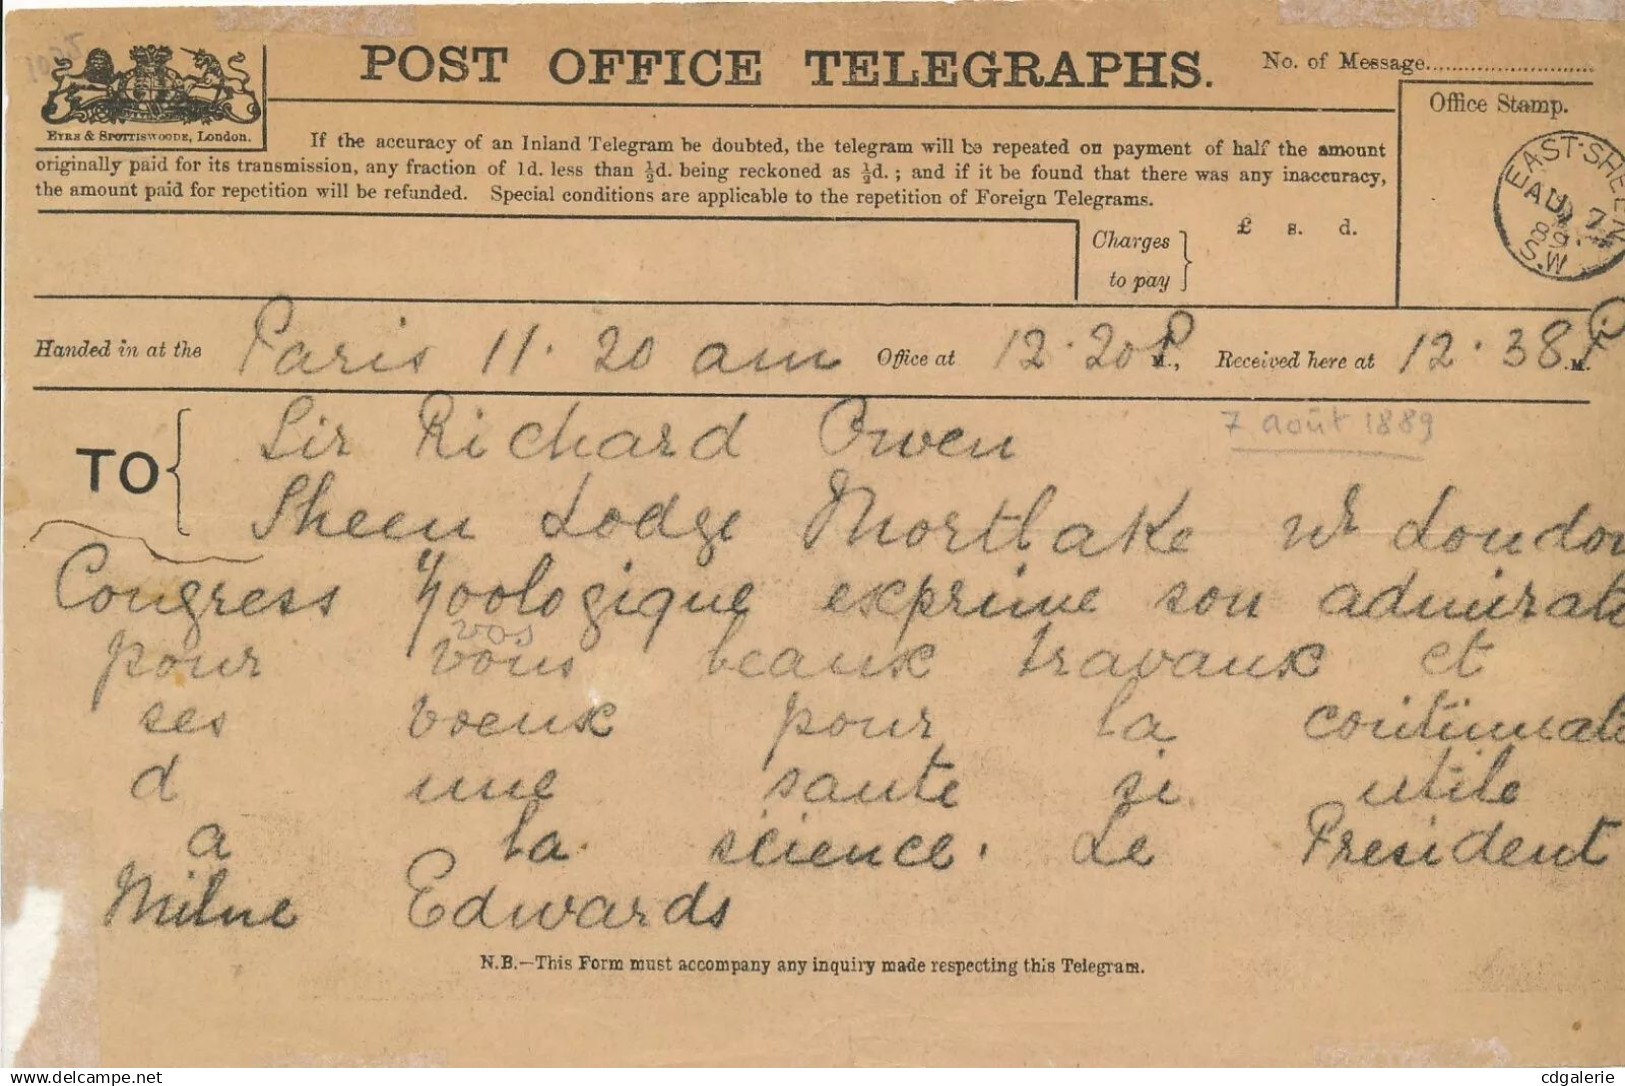 POST OFFICE TELEGRAPHS.
No. of Message
Office Stamp.
EYRE & SPOTTISWOODE, London.
If the accuracy of an Inland Telegram be doubted, the telegram will be repeated on payment of half the amount
originally paid for its transmission, any fraction of 1d. less than ½d. being reckoned as ½d.; and if it be found that there was any inaccuracy,
the amount paid for repetition will be refunded. Special conditions are applicable to the repetition of Foreign Telegrams.
EAST-SHEEN
AU 7
89
S.W
Charges to pay } £ s. d.
Handed in at the Paris 11.20 am Office at 12.20 P M., Received here at 12.38 P M.
7 août 1889
TO { Sir Richard Owen
Sheen Lodge Mortlake nr London
Congress Zoologique exprime son admirati
vos
pour vous beaux travaux et
ses voeux pour la continuati
d une sante si utile
a la science. Le President
Milne Edwards
N.B.—This Form must accompany any inquiry made respecting this Telegram.
delcampe.net
cdgalerie